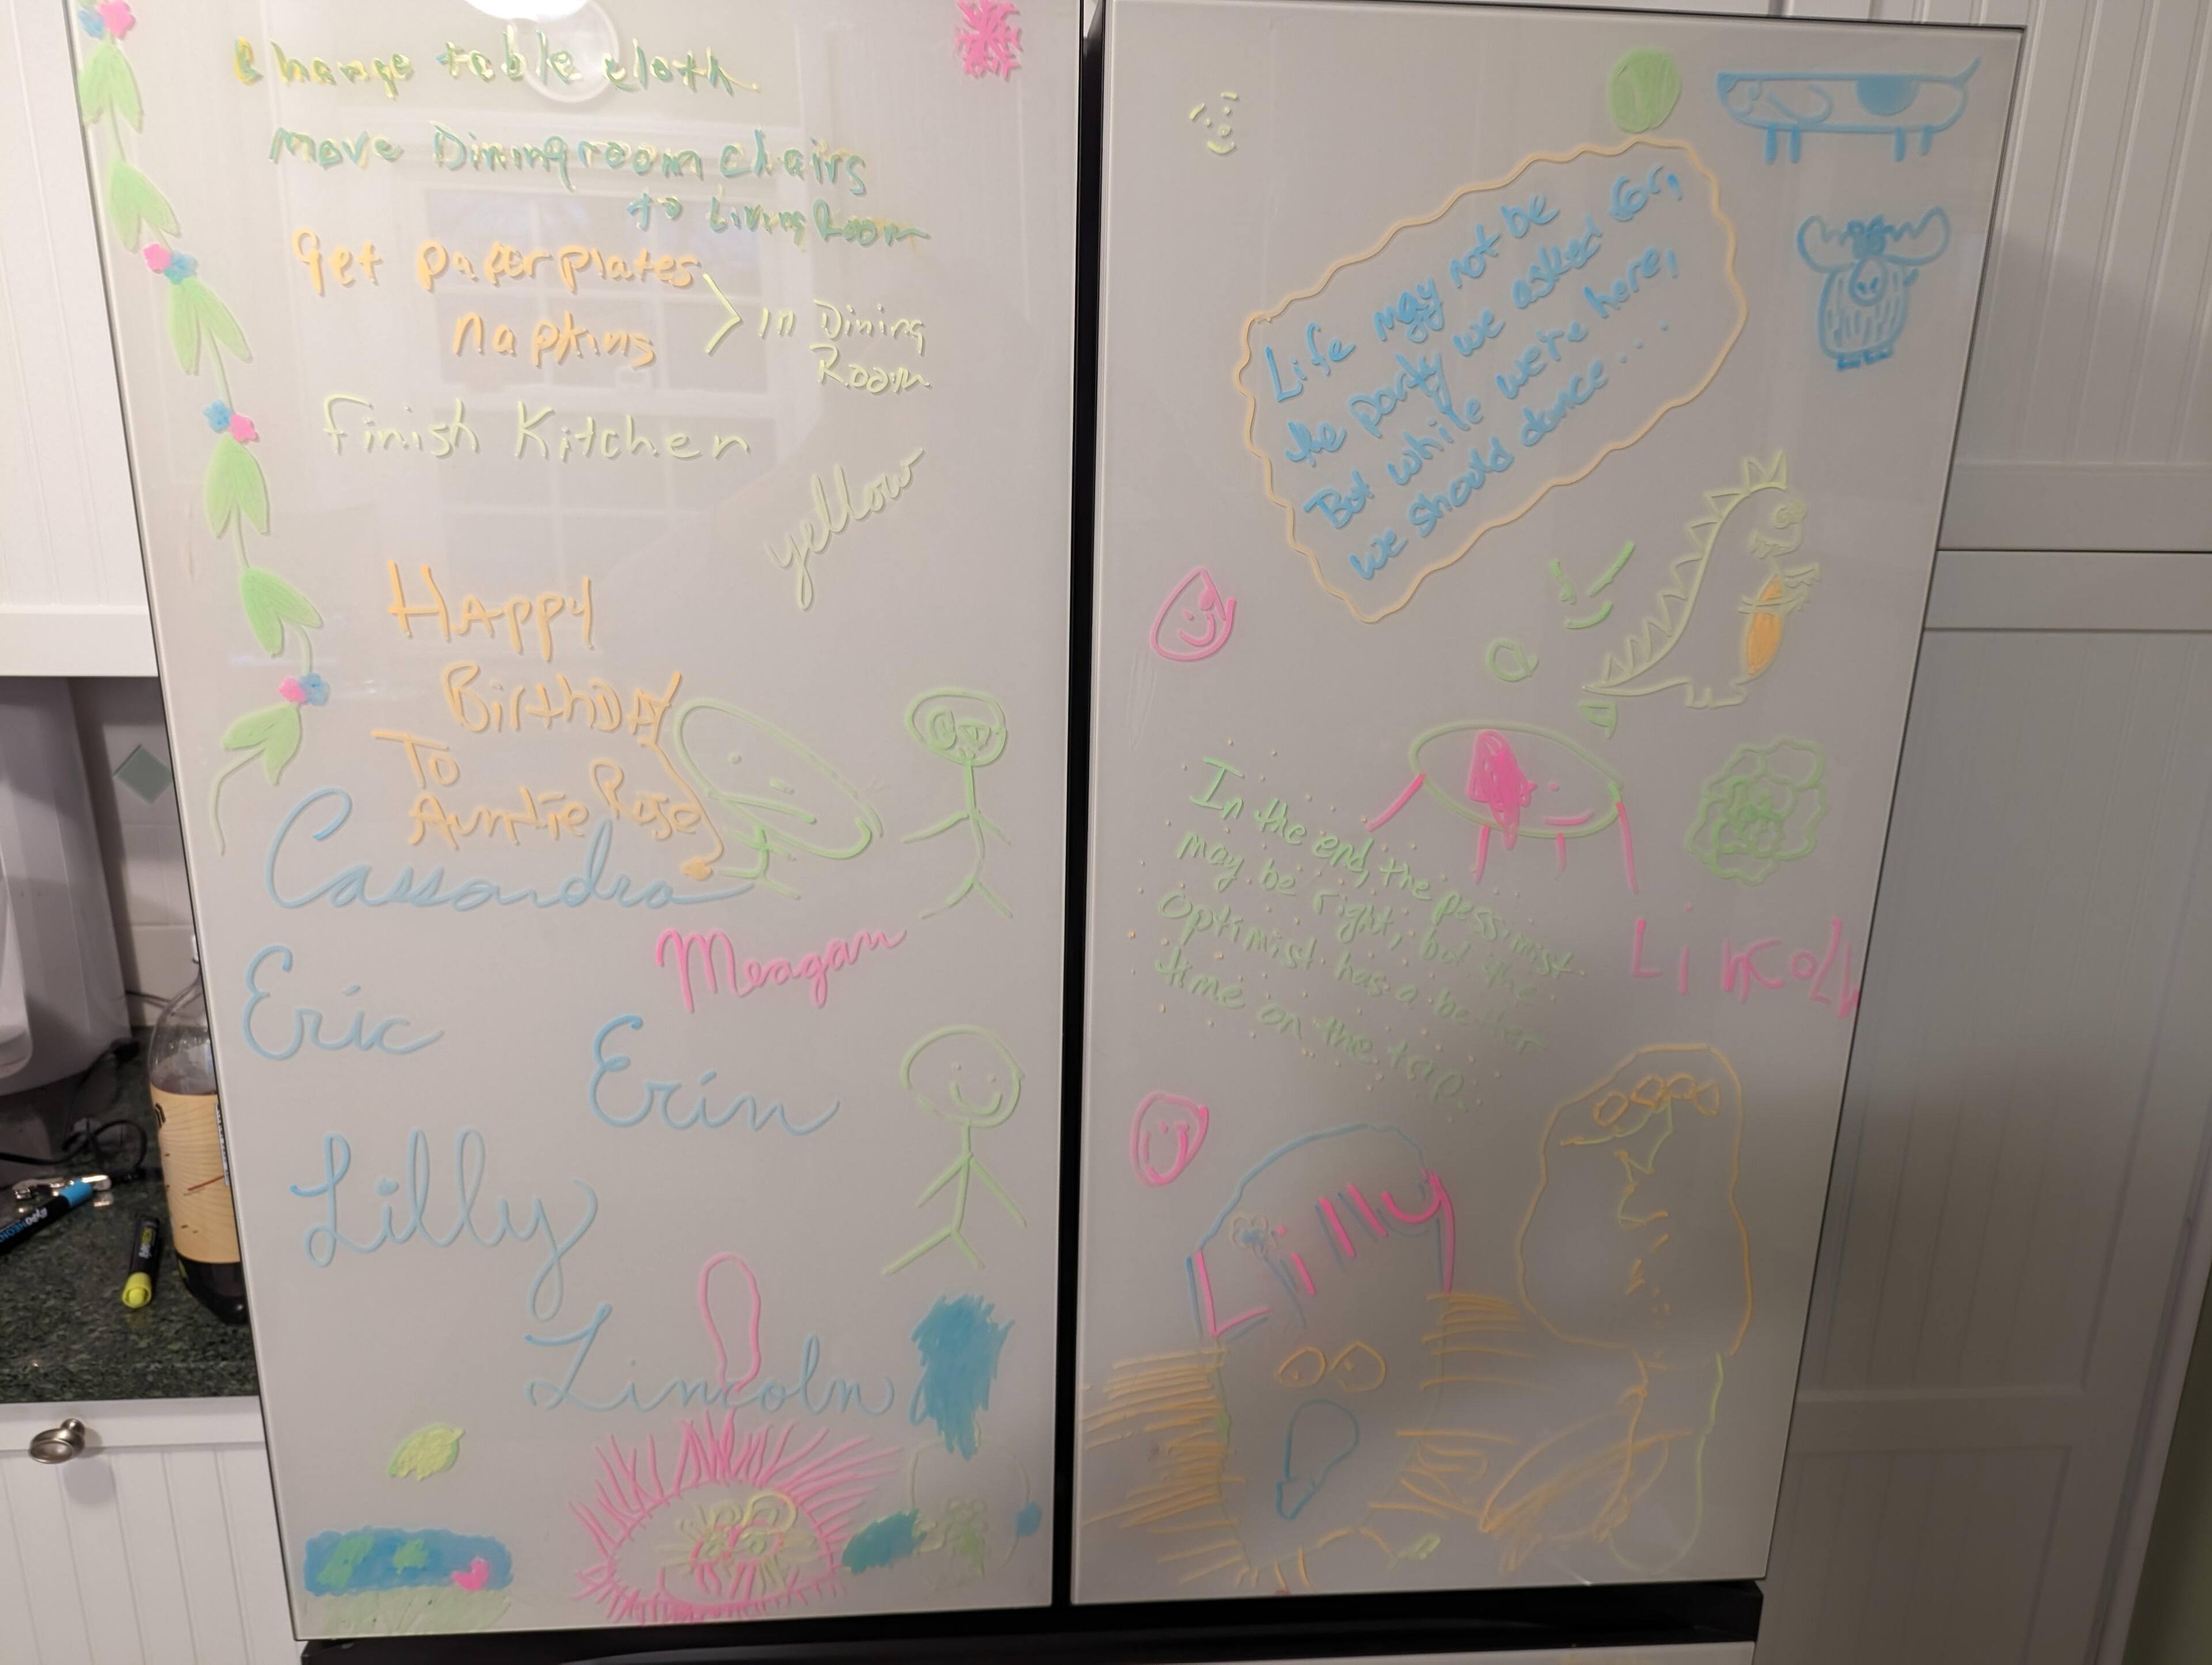 Change table cloth
move Diningroom chairs
to Living Room
get paper plates
napkins
in Dining
Room
finish Kitchen
yellow
Happy
BirthDAY
To
Auntie Rose
Cassandra
Meagan
Eric
Erin
Lilly
Lincoln
Life may not be
the party we asked for,
But while we're here,
we should dance...
In the end, the pessimist
may be right, but the
optimist has a better
time on the trip.
Lincoln
Lilly
EXPO